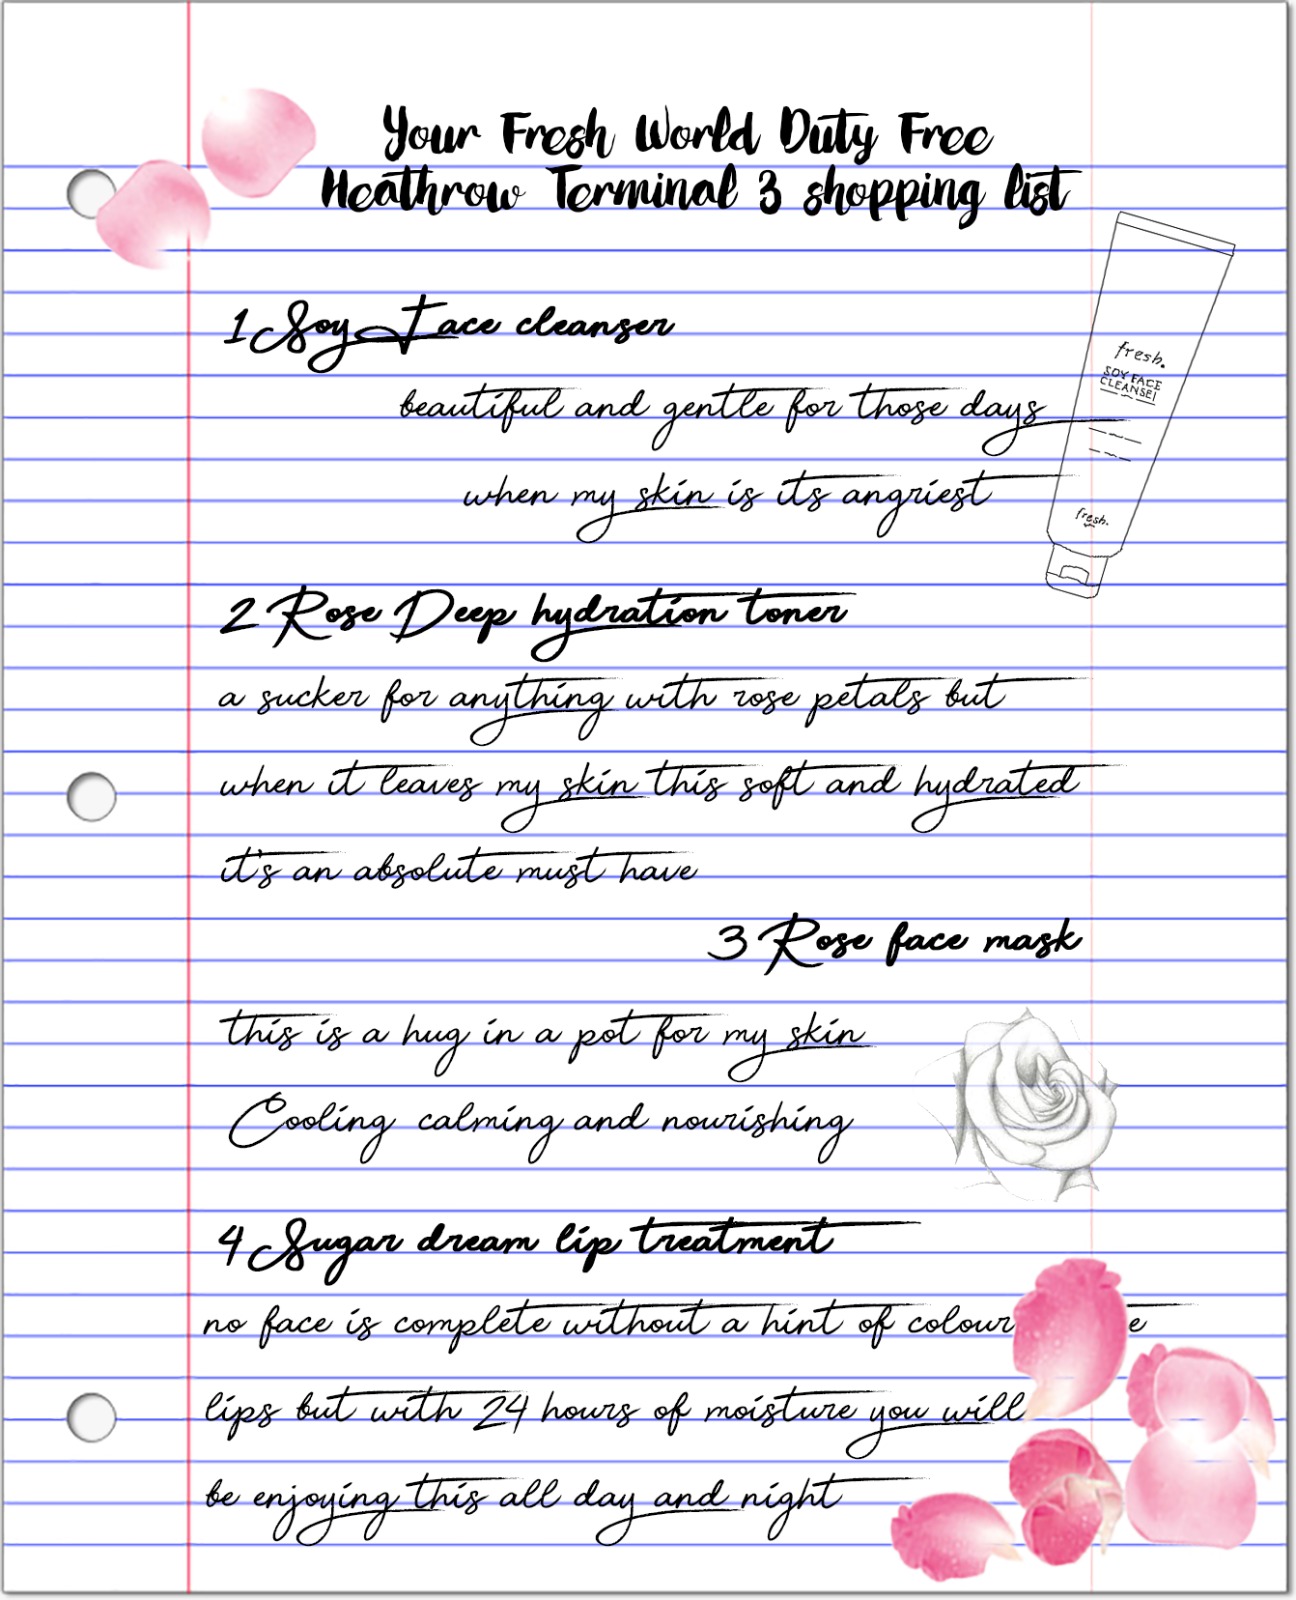 Your Fresh World Duty Free
Heathrow Terminal 3 shopping list
1 Soy Face cleanser
beautiful and gentle for those days
when my skin is its angriest
fresh.
SOY FACE
CLEANSE
fresh.
2 Rose Deep hydration toner
a sucker for anything with rose petals but
when it leaves my skin this soft and hydrated
it's an absolute must have
3 Rose face mask
this is a hug in a pot for my skin
Cooling calming and nourishing
4 Sugar dream lip treatment
no face is complete without a hint of colour
lips but with 24 hours of moisture you will
be enjoying this all day and night